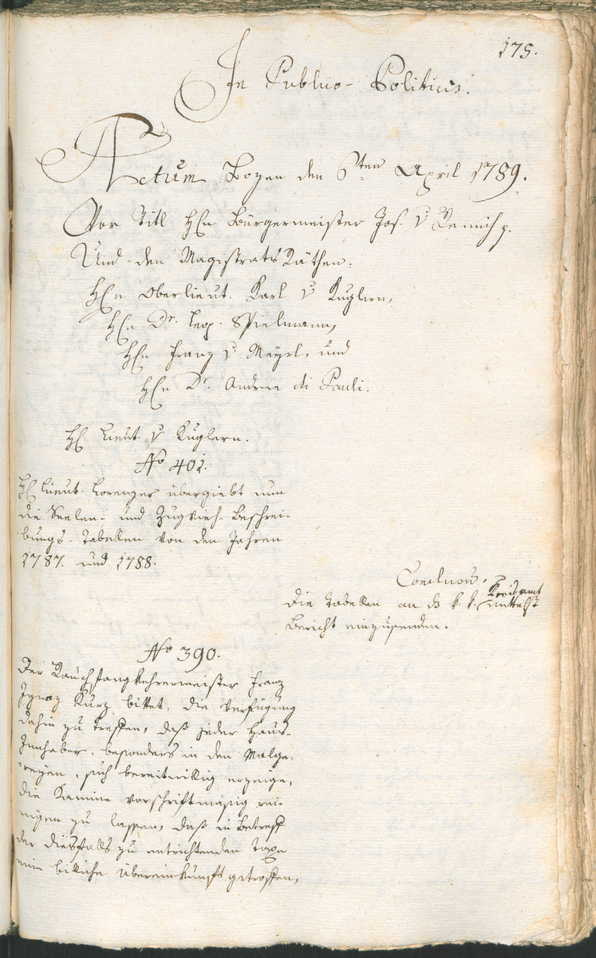 175.
In Publico-Politicis.
Actum Bozen den 6ten April 1789.
Vor Titl Hℓn Bürgermeister Jos. v Remich p.
Und den Magistrats Räthen.
Hℓn Oberlieut. Karl v Kuglern,
Hℓn Dr. Leop. Spielmann,
Hℓn Franz v Mayrl, und
Hℓn Dr. Andree di Pauli.
Hℓ Lieut. v Kuglern.
No 401.
Hℓ Lieut. Lorenzer übergiebt nun
die Seelen- und Zugvieh-Beschrei-
bungs Tabellen von den Jahren
1787. und 1788.
Conclusum.
Die Tabellen an das k. k. Kreisamt mittelst
Bericht einzusenden.
No 390.
Der Rauchfangkehrermeister Franz
Ignaz Kurz bittet, die Verfügung
dahin zu treffen, daß jeder Haus-
Innhaber, besonders in den Malge-
reyen, sich bereitwillig erzeige,
die Kamine vorschriftmäsig rei-
nigen zu lassen, daß in Betreff
der diesfalls zu entrichtenden Taxe
eine billiche Übereinkunft getroffen,